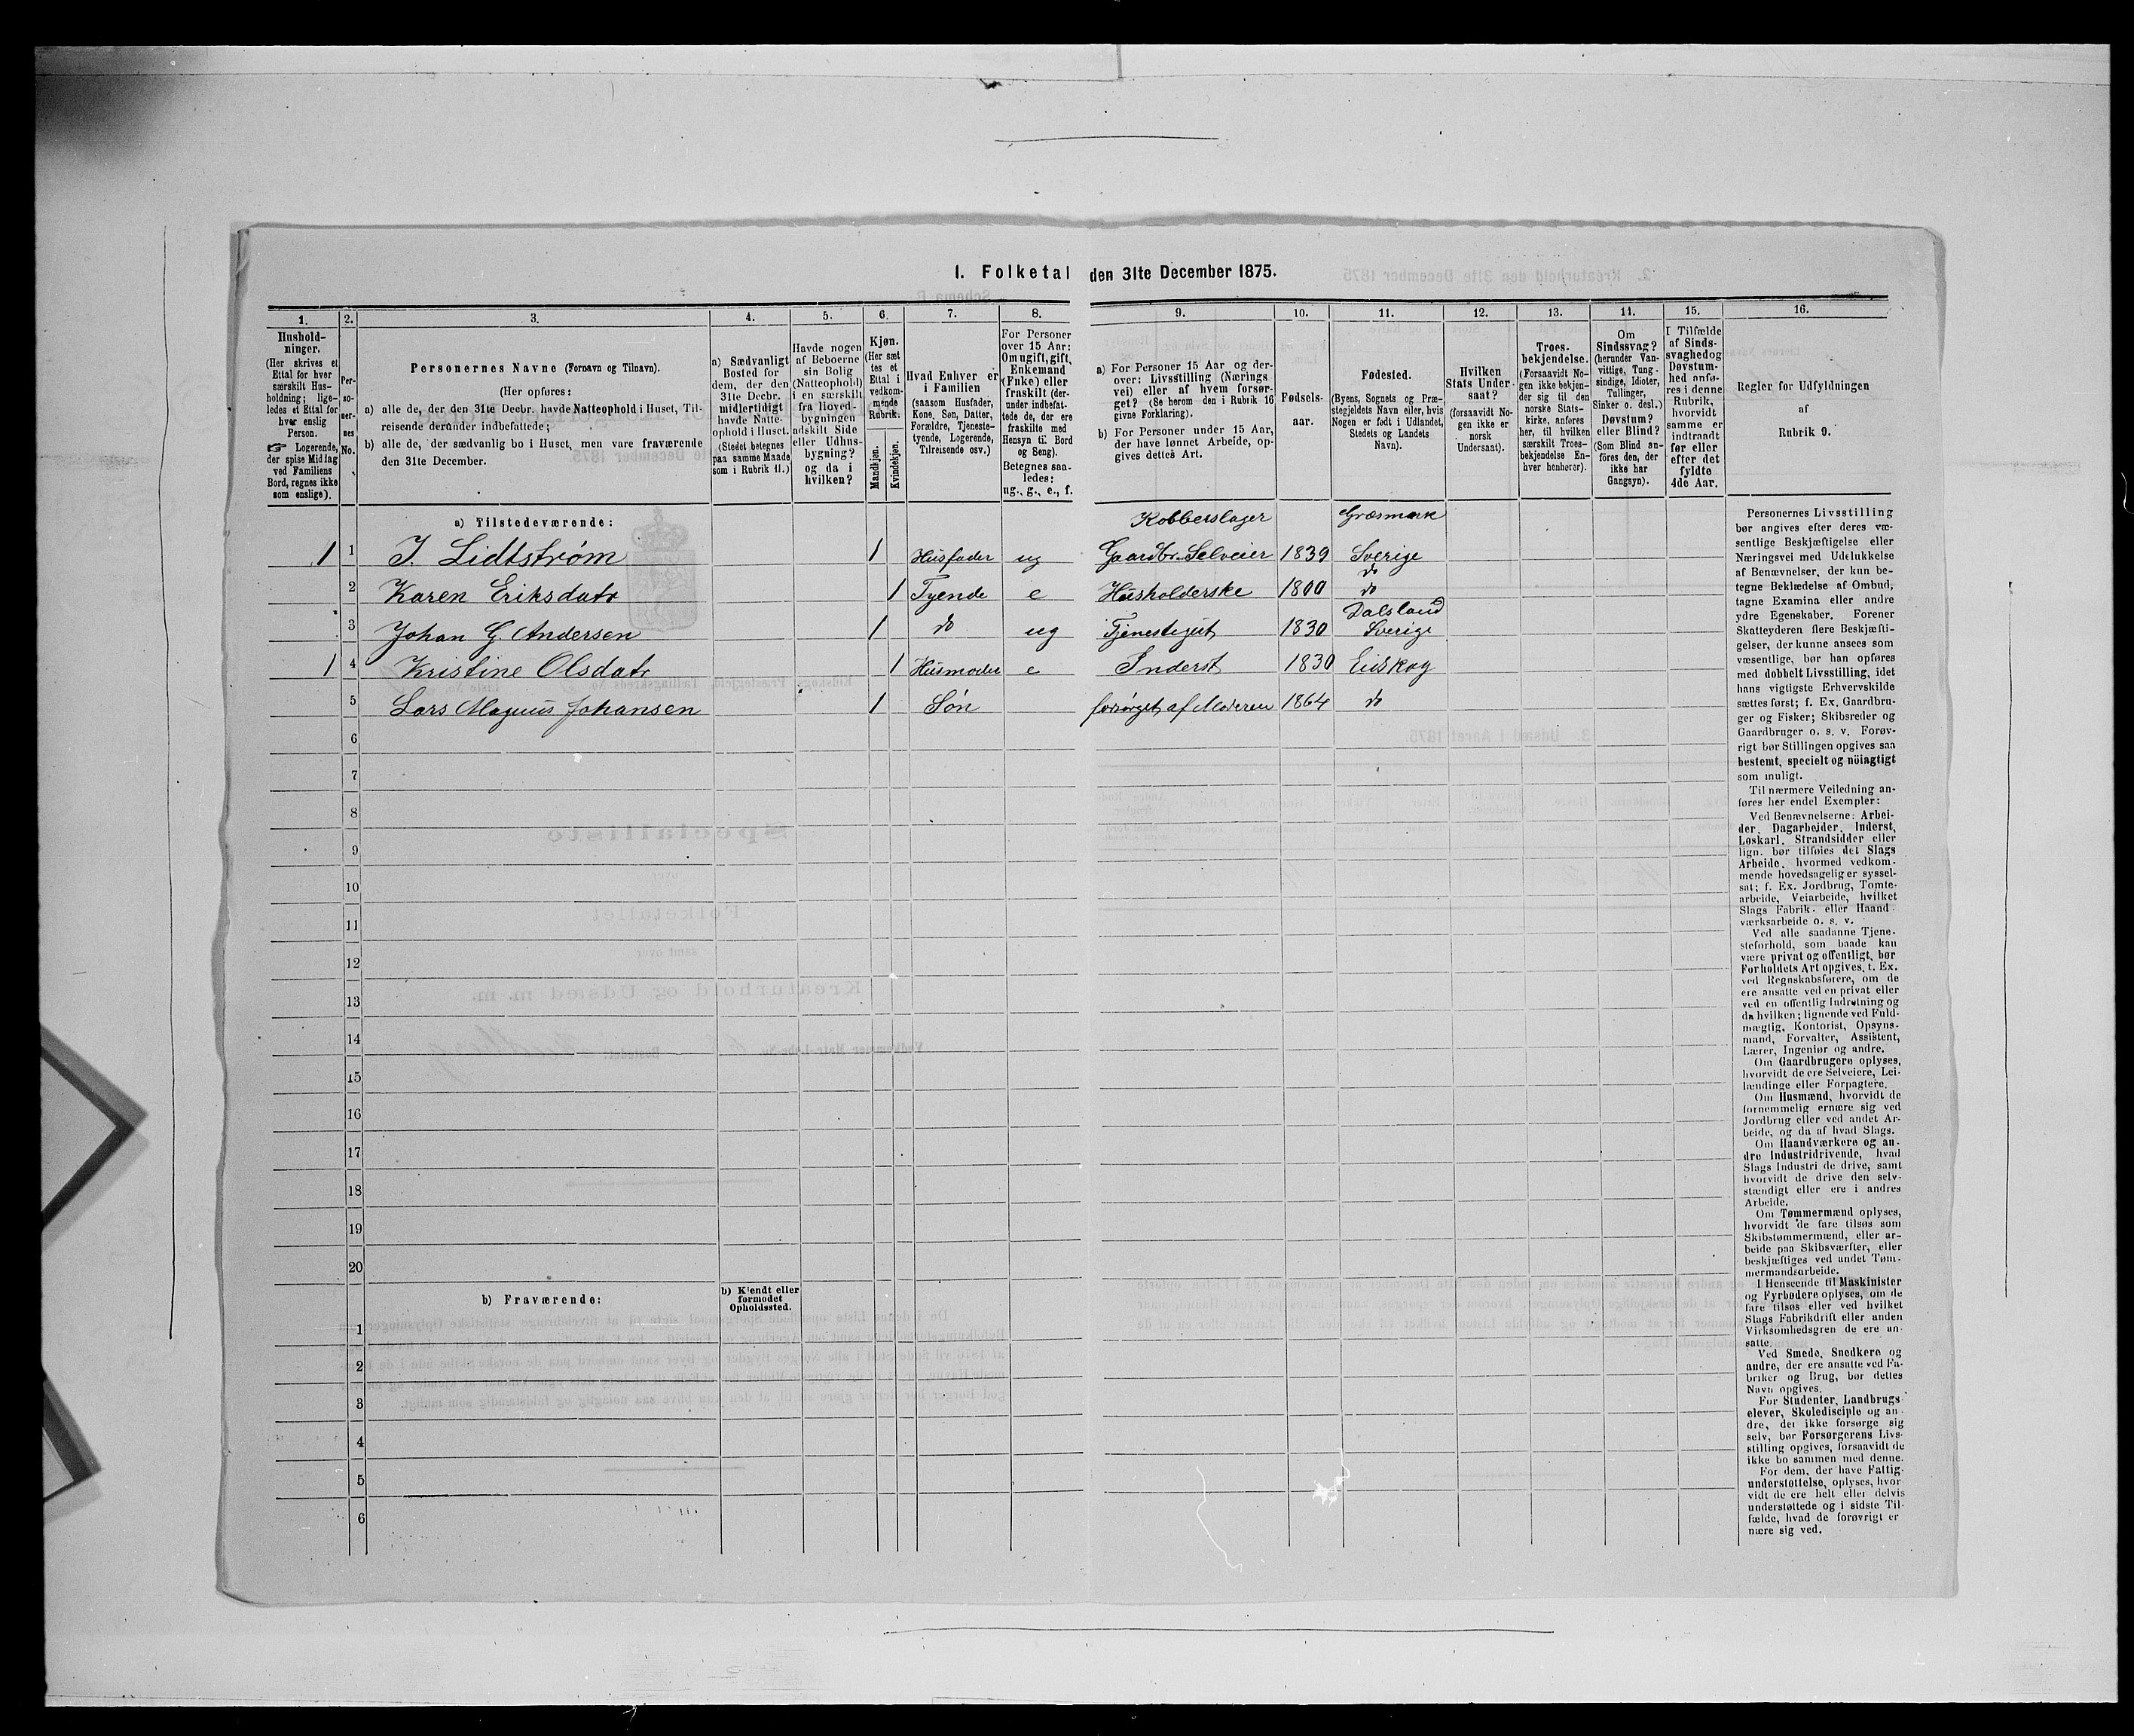 1. Folketal den 31te December 1875.
1. 2. 3. 4. 5. 6. 7. 8. 9. 10. 11. 12. 13. 11. 15. 16.
Hushold-
ninger.
(Her skrives et
Ettal for hver
særskilt Hus-
holdning; lige-
ledes et Ettal for
hver enslig
Person.
☞ Logerende,
der spise Middag
ved Familiens
Bord, regnes ikke
som enslige).
Per-
so-
ner-
nes
No.
Personernes Navne (Fornavn og Tilnavn).
(Her opføres:
a) alle de, der den 31te Decbr. havde Natteophold i Huset, Til-
reisende derunder indbefattede;
b) alle de, der sædvanlig bo i Huset, men vare fraværende
den 31te December.
a) Sædvanligt
Bosted for
dem, der den
31te Decbr.
midlertidigt
havde Natte-
ophold i Huset.
(Stedet betegnes
paa samme Maade
som i Rubrik 11.)
Havde nogen
af Beboerne
sin Bolig
(Natteophold)
i en særskilt
fra Hoved-
bygningen
adskilt Side
eller Udhus-
bygning?
og da i
hvilken?
Kjøn.
(Her sæt
tes et
Ettal i
vedkom-
mende
Rubrik.
Mandkjøn.
Kvindekjøn.
Hvad Enhver er
i Familien
(saasom Husfader,
Kone, Søn, Datter,
Forældre, Tjeneste-
tyende, Logerende,
Tilreisende osv.)
For Personer
over 15 Aar:
Om ugift, gift,
Enkemand
(Enke) eller
fraskilt (der-
under indbefat-
tede de, der ere
fraskilte med
Hensyn til Bord
og Seng).
Betegnes saa-
ledes:
ug., g., e., f.
a) For Personer 15 Aar og der-
over: Livsstilling (Nærings
vei) eller af hvem forsør-
get? (Se herom den i Rubrik 16
givne Forklaring).
b) For Personer under 15 Aar,
der have lønnet Arbeide, op-
gives dettes Art.
Fødsels-
aar.
Fødested.
(Byens, Sognets og Præ-
stegjeldets Navn eller, hvis
Nogen er født i Udlandet,
Stedets og Landets
Navn).
Hvilken
Stats Under-
saat?
(forsaavidt No-
gen ikke er
norsk
Undersaat).
Troes-
bekjendelse.
(Forsaavidt No-
gen ikke bekjen-
der sig til den
norske Stats-
kirke, anføres
her, til hvilken
særskilt Troes-
bekjendelse En-
hver henhører).
Om
Sindssvag?
(herunder Van-
vittige, Tung-
sindige, Idioter,
Tullinger,
Sinker o. desl.)
Døvstum?
eller Blind?
(Som Blind an-
føres den, der
ikke har
Gangsyn).
I Tilfælde
af Sinds-
svaghed og
Døvstum-
hed anfø-
res i denne
Rubrik,
hvorvidt
samme er
indtraadt
før eller
efter det
fyldte
4de Aar.
Regler for Udfyldningen
af
Rubrik 9.
a) Tilstedeværende:
Kobberslager Græsmark
1 1 J. Lidtstrøm 1 Husfader ug Gaardbr. Selveier 1839 Sverige
do
2 Karen Eriksdatr 1 Tyende e Husholderske 1800 do
Dalsland
3 Johan G. Andersen 1 do ug Tjenestegut 1830 Sverige
1 4 Kristine Olsdatr 1 Husmoder e Inderst 1830 Eidskog
5 Lars Magnus Johansen 1 Søn forsørget af Moderen 1864 do
6
7
8
9
10
11
12
13
14
15
16
17
18
19
20
b) Fraværende:
b) Kjendt eller
formodet
Opholdssted.
1
2
3
4
5
6
Personernes Livsstilling
bør angives efter deres væ-
sentlige Beskjæftigelse eller
Næringsvei med Udelukkelse
af Benævnelser, der kun be-
tegne Beklædelse af Ombud,
tagne Examina eller andre
ydre Egenskaber. Forener
Skatteyderen flere Beskjæfti-
gelser, der kunne ansees som
væsentlige, bør han opføres
med dobbelt Livsstilling, idet
hans vigtigste Erhvervskilde
sættes først; f. Ex. Gaardbru-
ger og Fisker; Skibsreder og
Gaardbruger o. s. v. Forøv-
rigt bør Stillingen opgives saa
bestemt, specielt og nöiagtigt
som muligt.
Til nærmere Veiledning an-
føres her endel Exempler:
Ved Benævnelserne: Arbei-
der, Dagarbeider, Inderst,
Løskarl, Strandsidder eller
lign. bør tilføies det Slags
Arbeide, hvormed vedkom-
mende hovedsagelig er syssel-
sat; f. Ex. Jordbrug, Tomte-
arbeide, Veiarbeide, hvilket
Slags Fabrik- eller Haand-
værksarbeide o. s. v.
Ved alle saadanne Tjene-
steforhold, som baade kan
være privat og offentligt, bør
Forholdets Art opgives, t. Ex.
ved Regnskabsførere, om de
ere ansatte ved en privat eller
ved en offentlig Indretning og
da hvilken; lignende ved Fuld-
mægtig, Kontorist, Opsyns-
mand, Forvalter, Assistent,
Lærer, Ingeniør og andre.
Om Gaardbrugere oplyses,
hvorvidt de ere Selveiere, Lei-
lændinge eller Forpagtere.
Om Husmænd, hvorvidt de
fornemmelig ernære sig ved
Jordbrug eller ved andet Ar-
beide, og da af hvad Slags.
Om Haandværkere og an-
dre Industridrivende, hvad
Slags Industri de drive, samt
hvorvidt de drive den selv-
stændigt eller ere i andres
Arbeide.
Om Tømmermænd oplyses,
hvorvidt de fare tilsøs som
Skibstømmermænd, eller ar-
beide paa Skibsværfter, eller
beskjæftiges ved andet Tøm-
mermandsarbeide.
I Henseende til Maskinister
og Fyrbødere oplyses, om de
fare tilsøs eller ved hvilket
Slags Fabrikdrift eller anden
Virksomhedsgren de ere an-
satte.
Ved Smede, Snedkere og
andre, der ere ansatte ved Fa-
briker og Brug, bør dettes
Navn opgives.
For Studenter, Landbrugs
elever, Skoledisciple og an-
dre, der ikke forsørge sig
selv, bør Forsørgerens Livs-
stilling opgives, forsaavidt de
ikke bo sammen med denne.
For dem, der have Fattig-
understøttelse, oplyses, hvor
vidt de ere helt eller delvis
understøttede og i sidste Til-
fælde, hvad de forøvrigt er
nære sig ved.